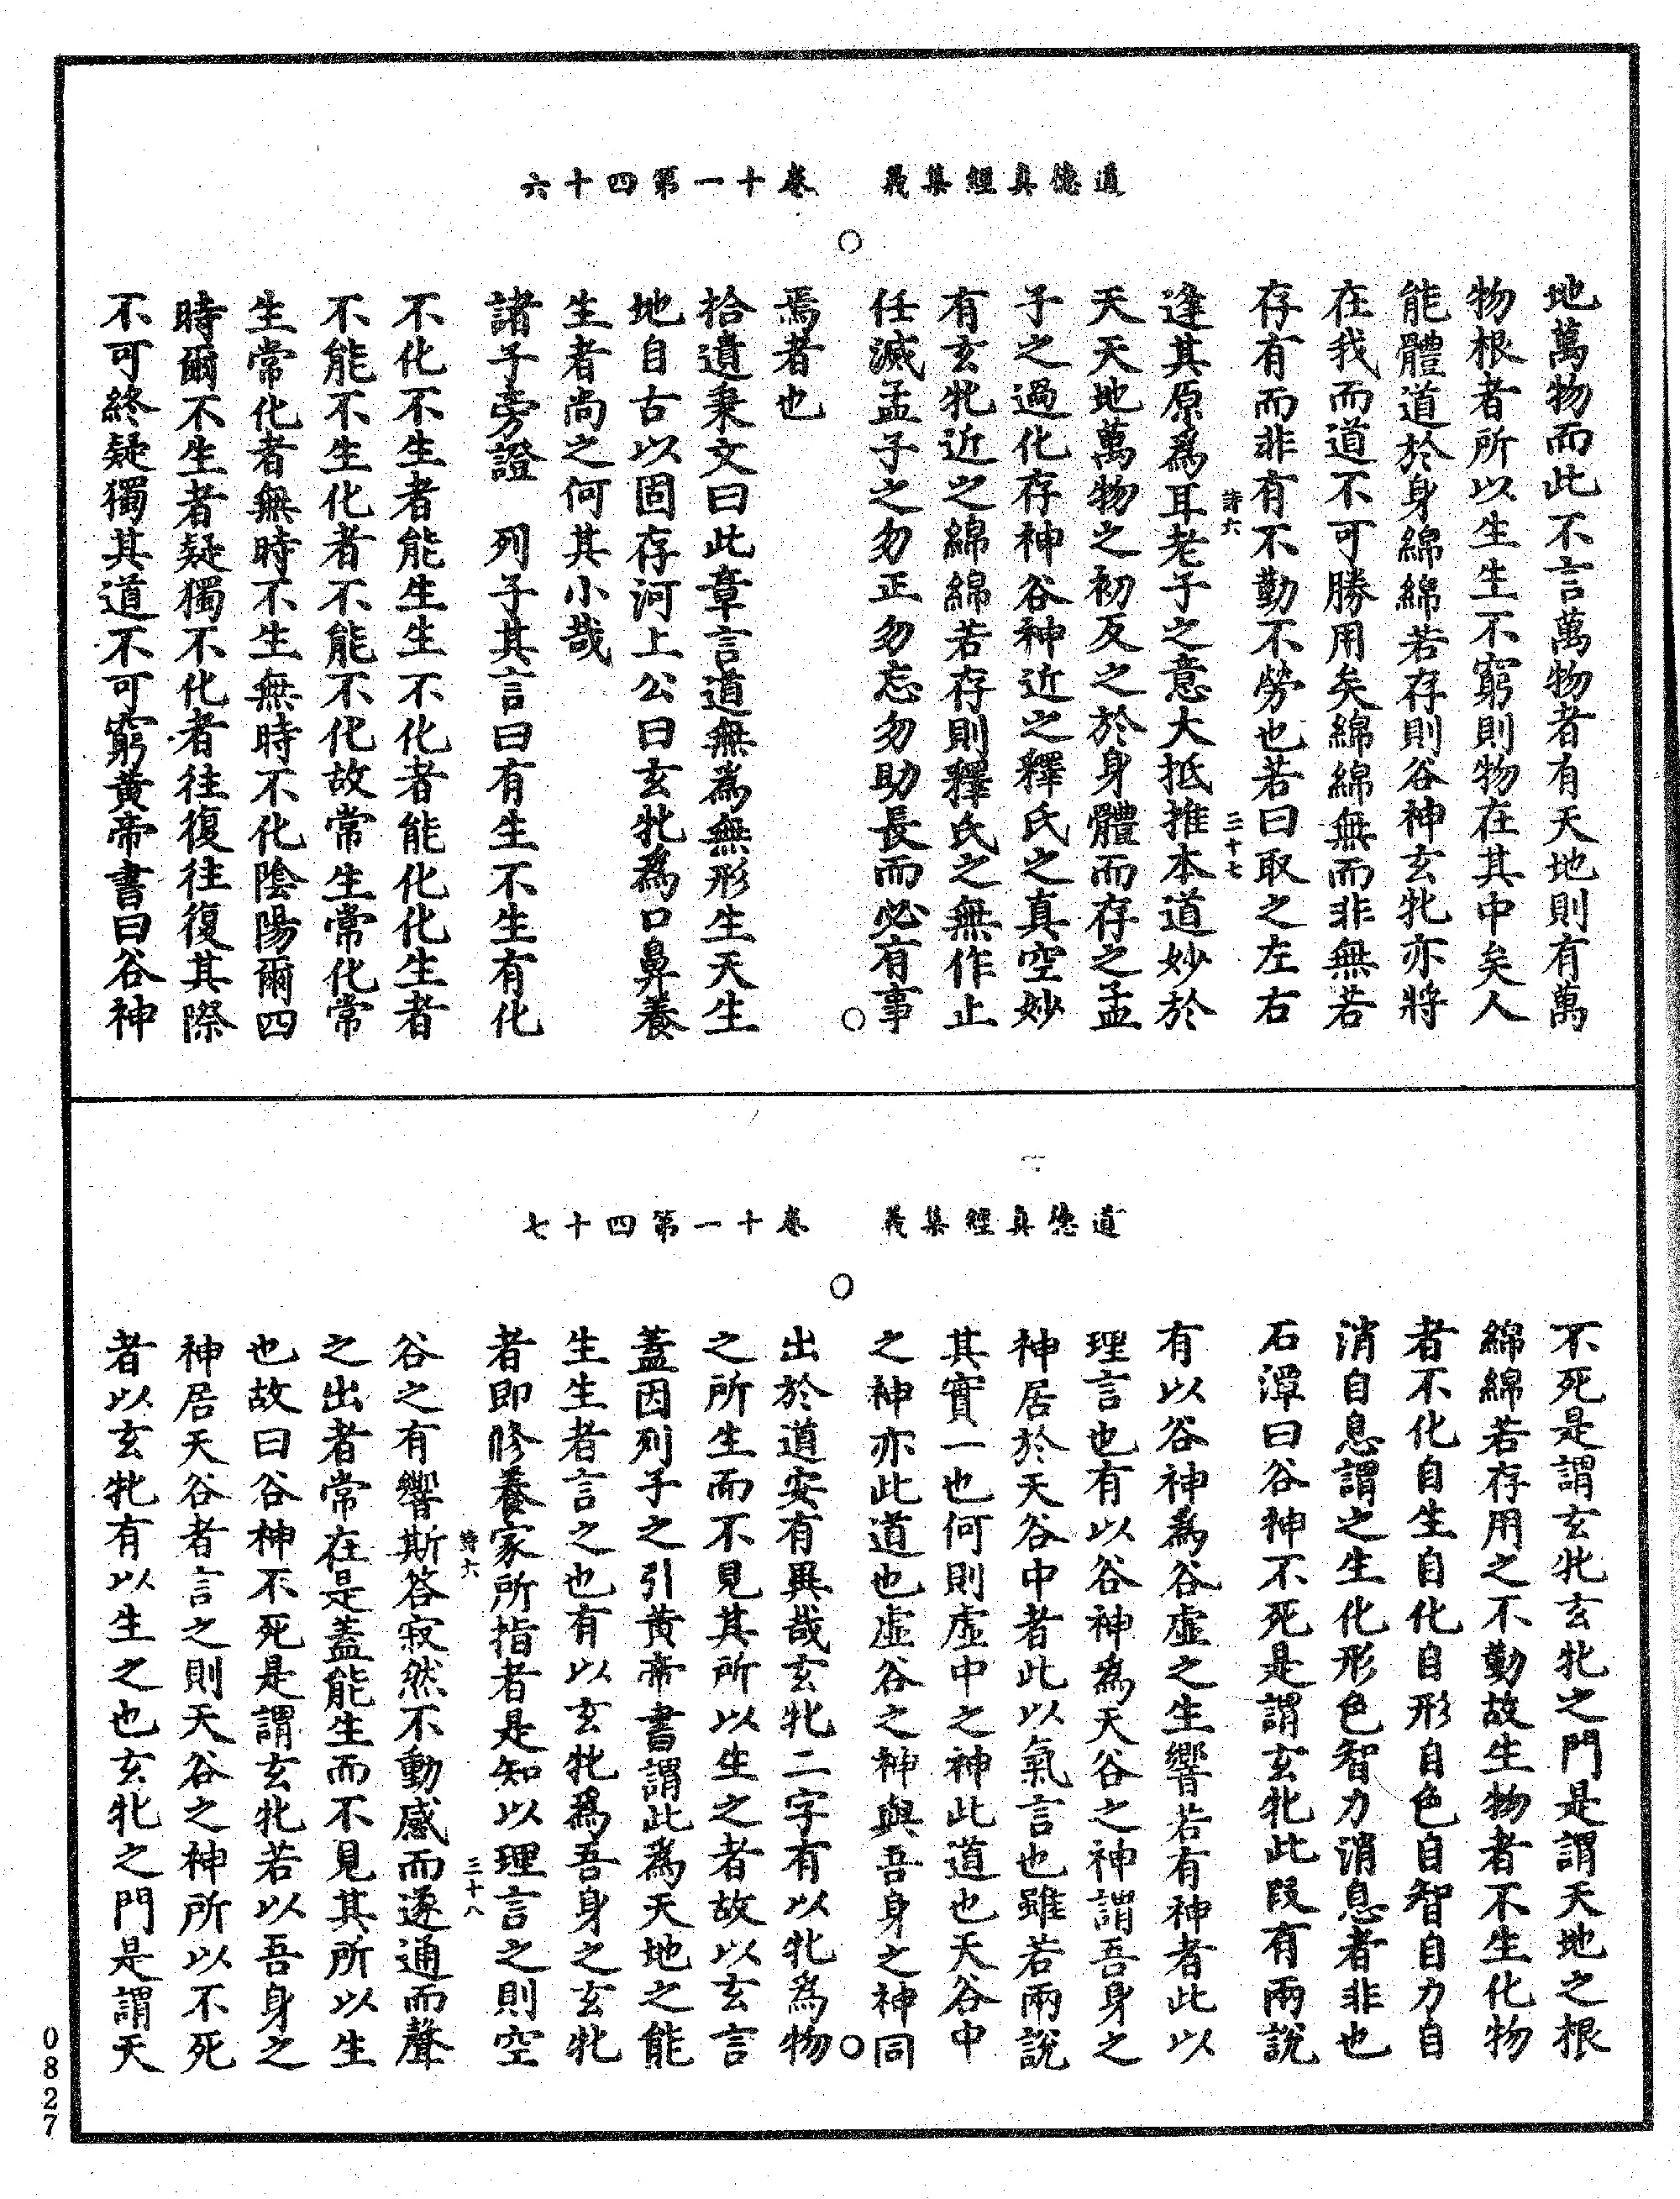 道德真經集義　卷十一第四十六
地萬物而此不言萬物者有天地則有萬
物根者所以生生不窮則物在其中矣人
能體道於身綿綿若存則谷神玄牝亦將
在我而道不可勝用矣綿綿無而非無若
存有而非有不勤不勞也若曰取之左右
詩六　三十七
逢其原為耳老子之意大抵推本道妙於
天天地萬物之初反之於身體而存之孟
子之過化存神谷神近之釋氏之真空妙
有玄牝近之綿綿若存則釋氏之無作止
任滅孟子之勿正勿忘勿助長而必有事
焉者也
拾遺秉文曰此章言道無為無形生天生
地自古以固存河上公曰玄牝為口鼻養
生者尚之何其小哉
諸子旁證　列子其言曰有生不生有化
不化不生者能生生不化者能化化生者
不能不生化者不能不化故常生常化常
生常化者無時不生無時不化陰陽爾四
時爾不生者疑獨不化者往復往復其際
不可終疑獨其道不可窮黃帝書曰谷神
道德真經集義　卷十一第四十七
不死是謂玄牝玄牝之門是謂天地之根
綿綿若存用之不勤故生物者不生化物
者不化自生自化自形自色自智自力自
消自息謂之生化形色智力消息者非也
石潭曰谷神不死是謂玄牝此段有兩說
有以谷神為谷虛之生響若有神者此以
理言也有以谷神為天谷之神謂吾身之
神居於天谷中者此以氣言也雖若兩說
其實一也何則虛中之神此道也天谷中
之神亦此道也虛谷之神與吾身之神同
出於道安有異哉玄牝二字有以牝為物
之所生而不見其所以生之者故以玄言
蓋因列子之引黃帝書謂此為天地之能
生生者言之也有以玄牝為吾身之玄牝
者即修養家所指者是知以理言之則空
詩六　三十八
谷之有響斯答寂然不動感而遂通而聲
之出者常在是蓋能生而不見其所以生
也故曰谷神不死是謂玄牝若以吾身之
神居天谷者言之則天谷之神所以不死
者以玄牝有以生之也玄牝之門是謂天
0827